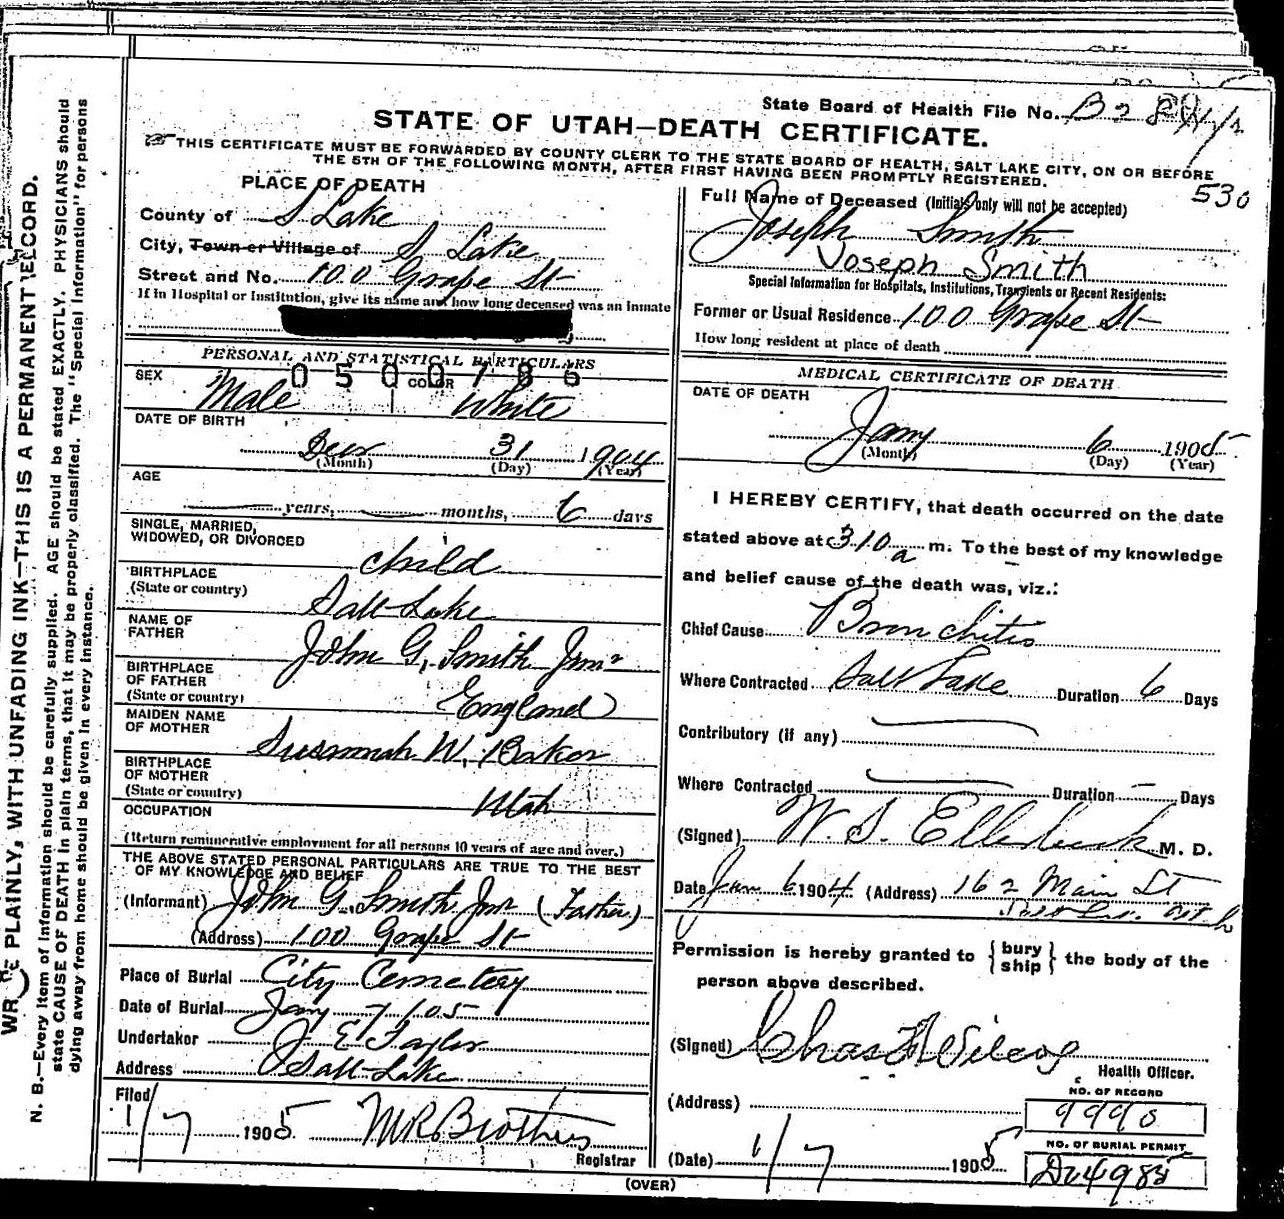 State Board of Health File No. B2
STATE OF UTAH—DEATH CERTIFICATE.
THIS CERTIFICATE MUST BE FORWARDED BY COUNTY CLERK TO THE STATE BOARD OF HEALTH, SALT LAKE CITY, ON OR BEFORE
THE 5TH OF THE FOLLOWING MONTH, AFTER FIRST HAVING BEEN PROMPTLY REGISTERED.
530
PLACE OF DEATH
County of S Lake
City, Town or Village of S Lake
Street and No. 100 Grape St
If in Hospital or Institution, give its name and how long deceased was an inmate
PERSONAL AND STATISTICAL PARTICULARS
0500186
SEX Male COLOR White
DATE OF BIRTH
Decr 31 1904
(Month) (Day) (Year)
AGE
years, months, 6 days
SINGLE, MARRIED,
WIDOWED, OR DIVORCED
child
BIRTHPLACE
(State or country) Salt Lake
NAME OF
FATHER John G. Smith Junr
BIRTHPLACE
OF FATHER
(State or country) England
MAIDEN NAME
OF MOTHER Susannah W. Barker
BIRTHPLACE
OF MOTHER
(State or country) Utah
OCCUPATION
(Return remunerative employment for all persons 10 years of age and over.)
THE ABOVE STATED PERSONAL PARTICULARS ARE TRUE TO THE BEST
OF MY KNOWLEDGE AND BELIEF
(Informant) John G. Smith Jnr (Father)
(Address) 100 Grape St
Place of Burial City Cemetery
Date of Burial Jany 7/05
Undertaker J E Taylor
Address Salt Lake
Filed
1/7 1905 Brothers
Registrar
Full Name of Deceased (Initials only will not be accepted)
Joseph Smith
Joseph Smith
Special Information for Hospitals, Institutions, Transients or Recent Residents:
Former or Usual Residence 100 Grape St
How long resident at place of death
MEDICAL CERTIFICATE OF DEATH
DATE OF DEATH
Jany 6 1905
(Month) (Day) (Year)
I HEREBY CERTIFY, that death occurred on the date
stated above at 310 a m. To the best of my knowledge
and belief cause of the death was, viz.:
Chief Cause Bronchitis
Where Contracted Salt Lake Duration 6 Days
Contributory (if any)
Where Contracted Duration — Days
(Signed) W. S. Ellerbeck M. D.
Date Jan 6 1904 (Address) 162 Main St
Permission is hereby granted to { bury ship } the body of the
person above described.
(Signed) Chas F Wilcox
Health Officer.
(Address)
NO. OF RECORD
9990
(Date) 1/7 1905
NO. OF BURIAL PERMIT
(OVER)
WRITE PLAINLY, WITH UNFADING INK—THIS IS A PERMANENT RECORD.
N. B.—Every item of information should be carefully supplied. AGE should be stated EXACTLY. PHYSICIANS should
state CAUSE OF DEATH in plain terms, that it may be properly classified. The "Special Information" for persons
dying away from home should be given in every instance.